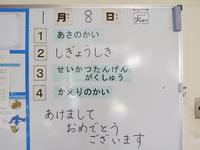 1月8日 火
1 あさのかい
2 しぎょうしき
3 せいかつたんげん
がくしゅう
4 かえりのかい
あけまして
おめでとう
ございます